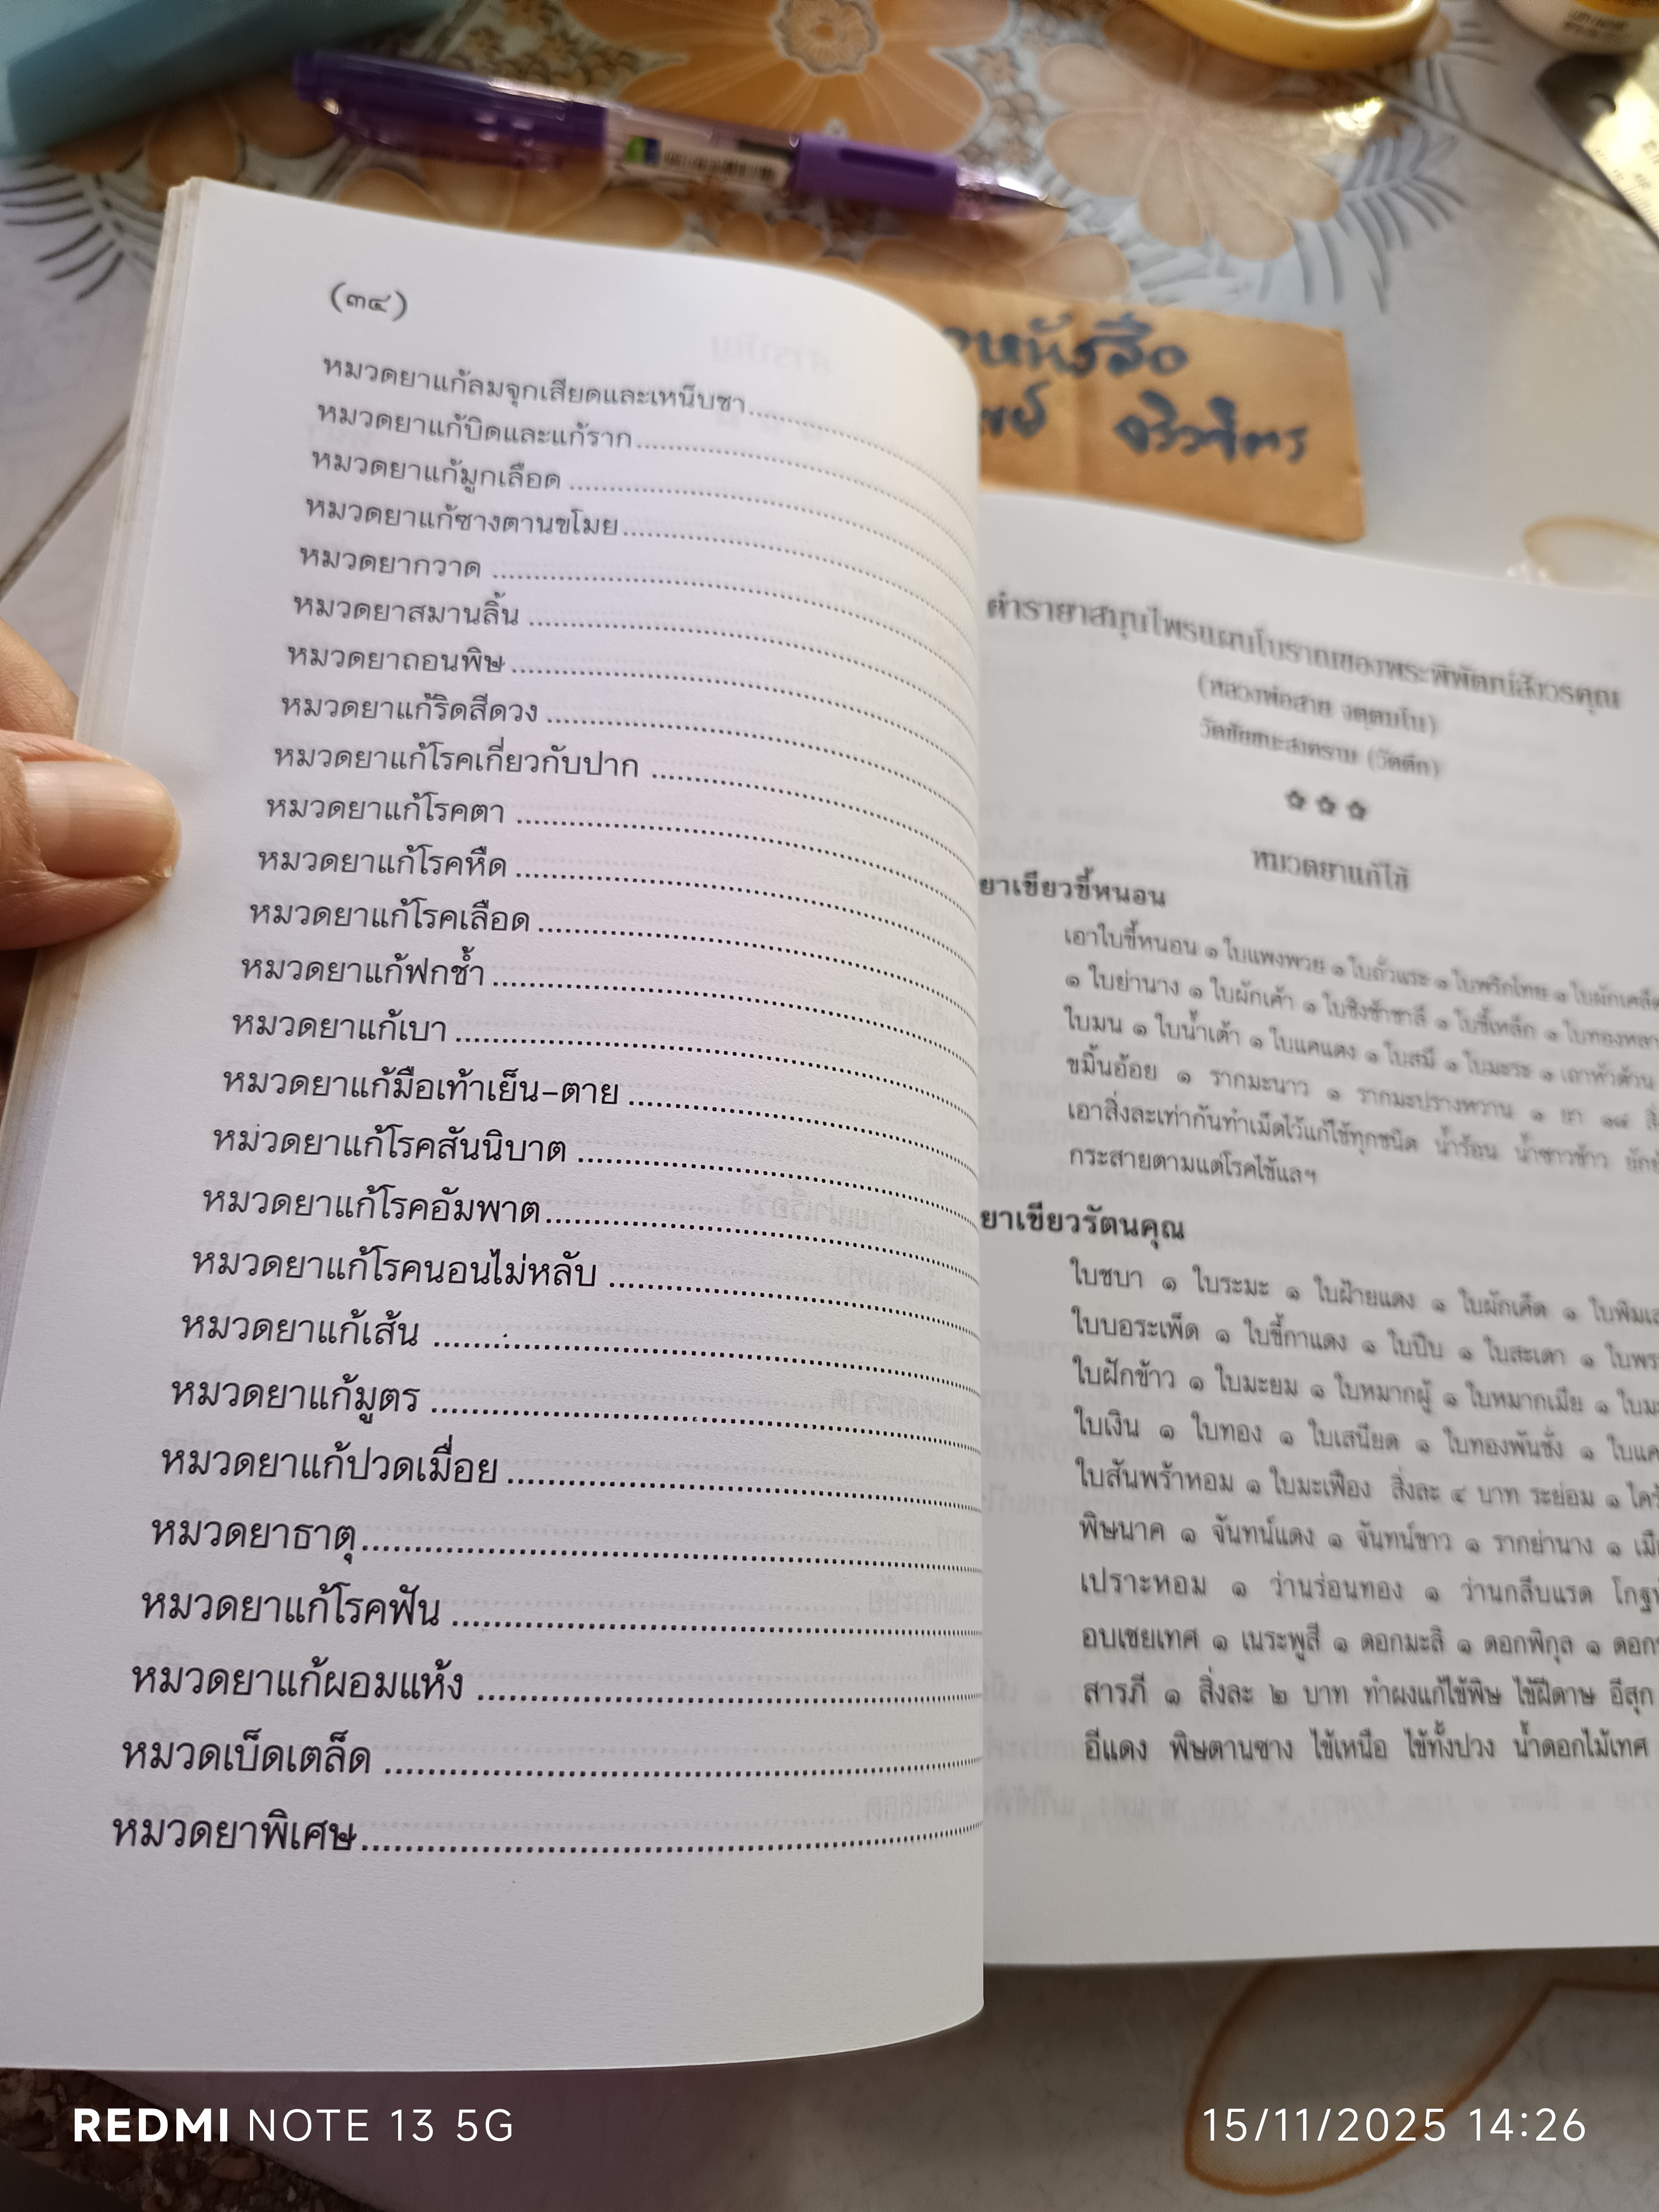 (๓๔)
หมวดยาแก้ลมจุกเสียดและเหน็บชา
หมวดยาแก้บิดและแก้ราก
หมวดยาแก้มูกเลือด
หมวดยาแก้ซางตานขโมย
หมวดยากวาด
หมวดยาสมานลิ้น
หมวดยาถอนพิษ
หมวดยาแก้ริดสีดวง
หมวดยาแก้โรคเกี่ยวกับปาก
หมวดยาแก้โรคตา
หมวดยาแก้โรคหืด
หมวดยาแก้โรคเลือด
หมวดยาแก้ฟกช้ำ
หมวดยาแก้เบา
หมวดยาแก้มือเท้าเย็น-ตาย
หมวดยาแก้โรคสันนิบาต
หมวดยาแก้โรคอัมพาต
หมวดยาแก้โรคนอนไม่หลับ
หมวดยาแก้เส้น
หมวดยาแก้มูตร
หมวดยาแก้ปวดเมื่อย
หมวดยาธาตุ
หมวดยาแก้โรคฟัน
หมวดยาแก้ผอมแห้ง
หมวดเบ็ดเตล็ด
หมวดยาพิเศษ
หนังสือ
จิวจิตร
ตำรายาสมุนไพรแผนโบราณของพระพิพัฒน์สังวรคุณ
(หลวงพ่อสาย
วัดชัยชนะสงคราม (วัดตึก)
หมวดยาแก้ไข้
ยาเขียวขี้หนอน
เอาใบขี้หนอน ๑ ใบแพงพวย ๑ ใบถั่วแระ ๑ ใบพริกไทย ๑
๑ ใบย่านาง ๑ ใบผักเค้า ๑ ใบชิงช้าชาลี ๑ ใบขี้เหล็ก ๑
ใบมน ๑ ใบน้ำเต้า ๑ ใบแคแดง ๑ ใบสมี ๑ ใบมะระ ๑ เถาหัวด้วน
ขมิ้นอ้อย ๑ รากมะนาว ๑ รากมะปรางหวาน ๑ ยา
เอาสิ่งละเท่ากันทำเม็ดไว้แก้ไข้ทุกชนิด น้ำร้อน น้ำซาวข้าว
กระสายตามแต่โรคไข้แลฯ
ยาเขียวรัตนคุณ
ใบชบา ๑ ใบระมะ ๑ ใบฝ้ายแดง ๑ ใบผักเค็ด ๑
ใบบอระเพ็ด ๑ ใบขี้กาแดง ๑ ใบปีบ ๑ ใบสะเดา ๑
ใบฝักข้าว ๑ ใบมะยม ๑ ใบหมากผู้ ๑ ใบหมากเมีย ๑
ใบเงิน ๑ ใบทอง ๑ ใบเสนียด ๑ ใบทองพันชั่ง ๑
ใบสันพร้าหอม ๑ ใบมะเฟือง สิ่งละ ๔ บาท ระย่อม ๑
พิษนาค ๑ จันทน์แดง ๑ จันทน์ขาว ๑ รากย่านาง ๑
เปราะหอม ๑ ว่านร่อนทอง ๑ ว่านกลีบแรด
อบเชยเทศ ๑ เนระพูสี ๑ ดอกมะลิ ๑ ดอกพิกุล ๑
สารภี ๑ สิ่งละ ๒ บาท ทำผงแก้ไข้พิษ ไข้ฝีดาษ อีสุก
อีแดง พิษตานซาง ไข้เหนือ ไข้ทั้งปวง น้ำดอกไม้เทศ
REDMI NOTE 13 5G
15/11/2025 14:26